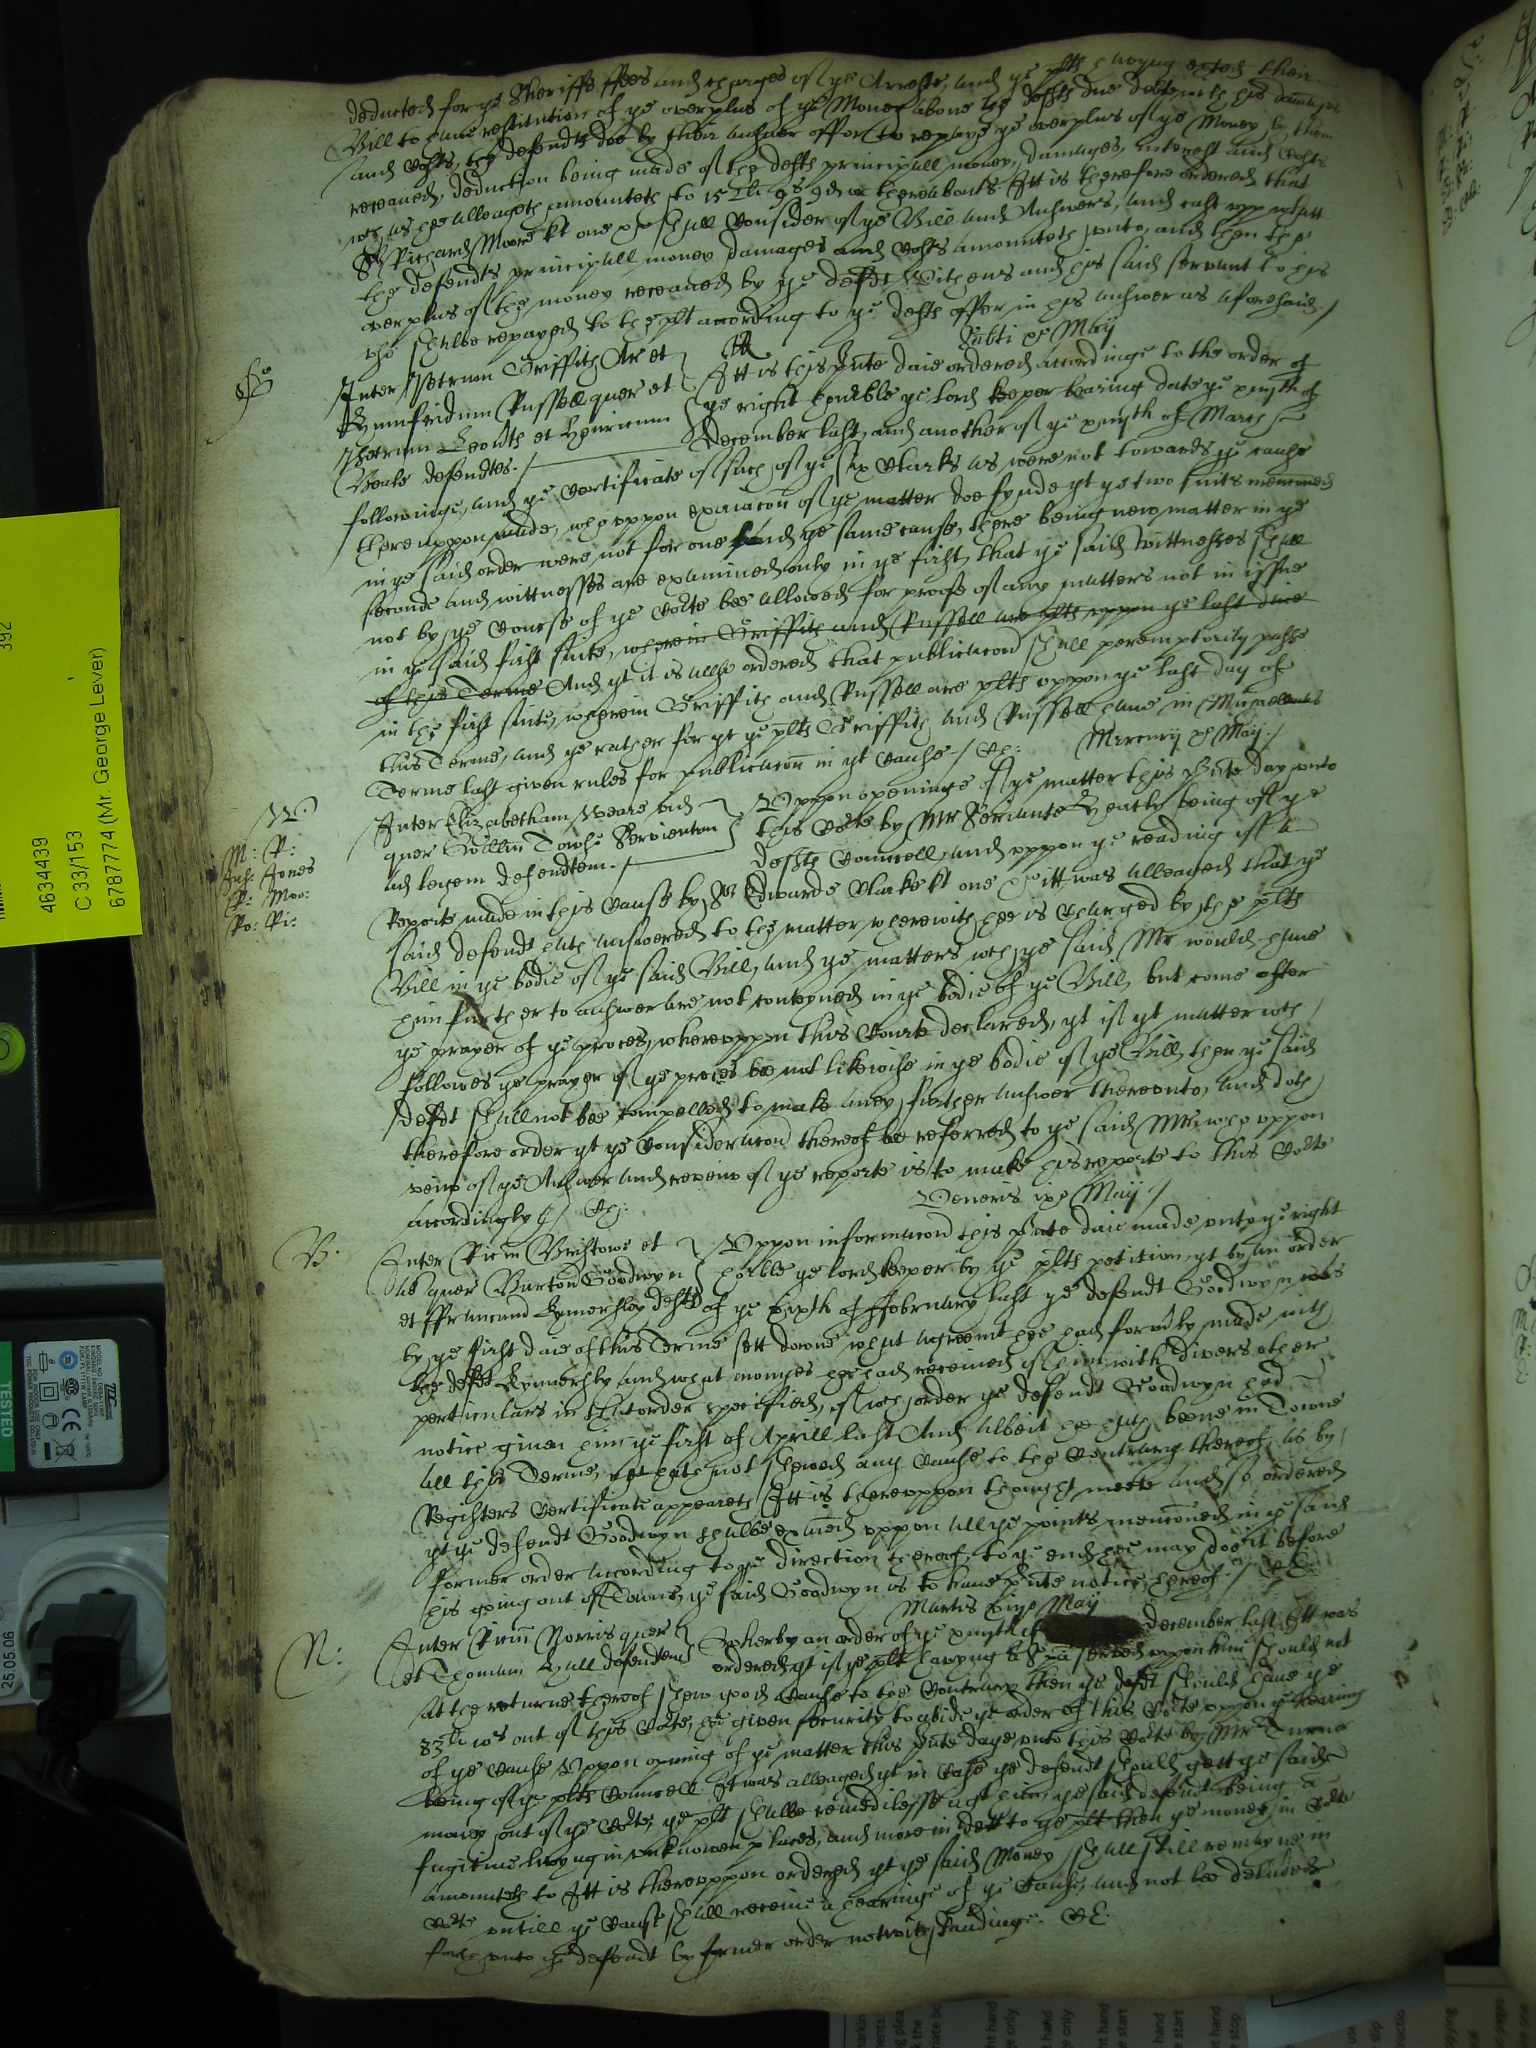 deducted for ye Sheriffs ffees and charges of ye Arreste, and ye plts having exted their
Bill to have restitution of ye overplus of ye Money above the defts due debte wth his damages
and Costs, the defendts doe by their answer offer to repaye ye overplus of ye Money by them
receaued, deduction being made of the defts principall money, damages, interest and Costs
wch as he alleageth amounteth to 15 li 9s 9d or thereabouts Itt is therefore ordered that
Sr Richard Moore kt one &c shall Consider of ye Bill and Answers, and cast upp what
the defendts principall money damages and Costs amounteth unto, and then the
overplus of the money receaued by ye defdt Withens and his said servant to his
use shalbe repayed to the plt according to ye defts offer in his answer as aforesaid./
Sabti xo May
Inter Petrum Griffith Ar et
Humfridum Russell quer et
Petrum Leonth et Henricum
Beale defendtes./
Itt is this pnte daie ordered accordinge to the order of
ye right honble ye Lord keeper bearing date ye xviijth of
December last, and another of ye xviijth of March
followinge, and ye Certificate of such of ye six Clarks as were not towards ye cause
thereuppon made, who uppon examacon of ye matter doe fynde yt ye two suits menconed
in ye said order were not for one and ye same cause, there being new matter in ye
seconde and wittnesses are examined only in ye first, that ye said Wittnesses shall
not by ye Course of ye Corte bee allowed for proofe of any matters not in issue
in ye said first suite, wherein Griffith and Russell are plts uppon ye last daie
of this Terme And yt it is allso ordered that publicacon shall peremptorily passe
in the first suite, wherein Griffith and Russell are plts uppon ye last day of
this Terme, and ye rather for yt ye plts Griffith and Russell have in Michaellmas
Terme last given rules for publicacon in yt Cause./
Mercurij xo May./
W
M: P:
Joh: Jones
P: Moo:
Po: Pi:
Inter Elizabetham Weare vid
quer Willm Towse Servientem
ad legem defendtem./
Uppon openinge of ye matter this pnte day unto
this Corte by Mr Seriante Heath being of ye
defts Councell, and uppon ye reading of a
Reporte made in this Cause by Sr Edwarde Clarke kt one &c itt was alleaged that ye
said defendt hath answered to the matter wherewith hee is Charged by the plts
Bill in ye bodie of ye said Bill, and ye matters wch ye said Mr would have
him further to answer are not conteyned in ye bodie of ye Bill, but come after
ye prayer of ye proces, whereuppon this Courte declared, yt if yt matter wch
followes ye prayer of ye proces bee not likewise in ye bodie of ye Bill, then ye said
defdt shall not bee compelled to make aney further answer thereunto, and doth
therefore order yt ye Consideracon thereof be referred to ye said Mr, who uppon
veiw of ye Answer and reveiw of ye reporte is to make his reporte to this Corte
accordingly./
Veneris ixo May./
B.
Inter Ricm Bristowe et
quer Burton Goodwyn
et ffrancum Kymersley defts
Uppon informacon this pnte daie made unto ye right
honble ye Lord keeper by ye plts petition, yt by an order
of ye sixth of ffebruary last ye defendt Goodwyn was
by ye first daie of this Terme sett downe what agreemt hee had formrly made with
the defdt Kymersley and what monyes hee had receiued of him with divers other
perticulars in that order specified, of wch order ye defendt Goodwyn had
notice given him ye first of Aprill last And albeit hee hath beene in Towne
all this Terme, yet hath not shewed any Cause to the Contrary thereof, as by
Registers Certificate appeareth Itt is thereuppon thought meete and so ordered
yt ye defendt Goodwyn shalbe examed uppon all ye points menconed in ye said
former order according to ye direction thereof, to ye end hee may doe it before
his going out of Towne, ye said Goodwyn is to haue pnte notice hereof./
Martis xiijo May
N:
Inter Norris quer
et Thomam Hall defendtem
Wherby an order of ye xviijth of December last Itt was
ordered yt if ye plt having a Spa served uppon him should not
at the returne thereof shew good Cause to the Contrary then ye defdt should have ye
83li wch out of this Corte, hee given security to abide ye order of this Corte uppon ye hearing
of ye Cause Uppon opening of ye matter this pnte daye, unto this Corte by Mr Turnor
being of ye plts Councell. It was alleaged yt in Case ye defendt should gett ye said
money out of ye Corte, ye plt shalbe remedilesse agst him, ye said defendt being a
fugitive living in unknowen places, and more in dett to ye plt then ye money in Corte
amounteth to Itt is thereuppon ordered yt ye said Money shall still remayne in
Corte untill ye Cause shall receive a hearinge of ye Cause, and not be deliuered
unto ye defendt by former order notwithstandinge.
392
4634439
C 33/153
6787774 (Mr. George Lever)
TESTED
25.05.06